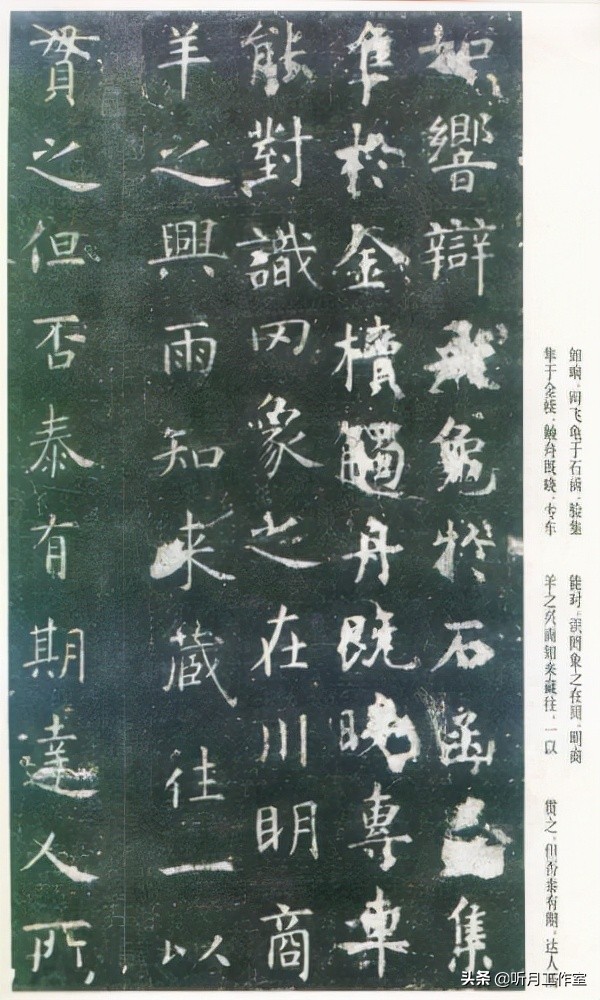 如響辯龜於石函集
隼於金櫝觸舟既曉專車
能對識罔象之在川明商
羊之興雨知来藏往一以
貫之但否泰有期達人所
如响，辩飞龟于石函，验集
隼于金椟，触舟既晓，专车
能对。识罔象之在川，明商
羊之兴雨。知来藏往，一以
贯之。但否泰有期，达人所
头条 @听月工作室